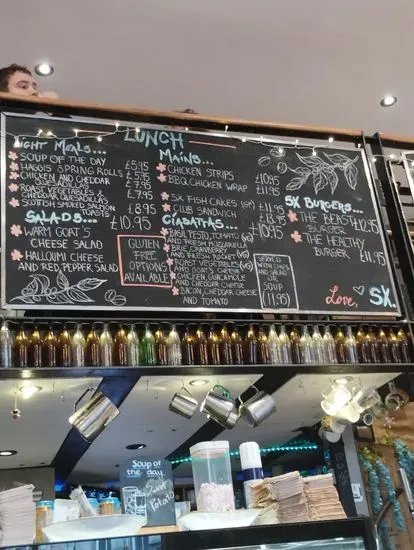 LUNCH
LIGHT MEALS...
SOUP OF THE DAY £5.95
HAGGIS SPRING ROLLS £5.95
CHICKEN AND CHEDDAR QUESADILLAS £7.95
ROAST VEGETABLES & GREEK QUESADILLAS £7.95
SCOTTISH SMOKED SALMON TOASTS £8.95
SALADS... £10.95
WARM GOAT'S
CHEESE SALAD
HALLOUMI CHEESE
AND RED PEPPER SALAD
GLUTEN
FREE
OPTIONS
AVAILABLE
MAINS...
CHICKEN STRIPS £10.95
BBQ CHICKEN WRAP £11.95
SIX FISH CAKES
CLUB SANDWICH
CIABATTAS... £10.95
BASIL PESTO, TOMATO
AND FRESH MOZZARELLA
BRIE, CRANBERRY
AND FRESH ROCKET
ROAST VEGETABLES
AND GOAT'S CHEESE
CHICKEN, GUACAMOLE
AND CHEDDAR CHEESE
BACON, CHEDDAR CHEESE
AND TOMATO
SERVED
WITH
AND SALAD
OR
SOUP
(£11.95)
SX BURGERS...
THE BEAST BURGER £12.95
THE HEALTHY BURGER £11.95
Love, SX.
Soup of
the day
Sweet
Potato